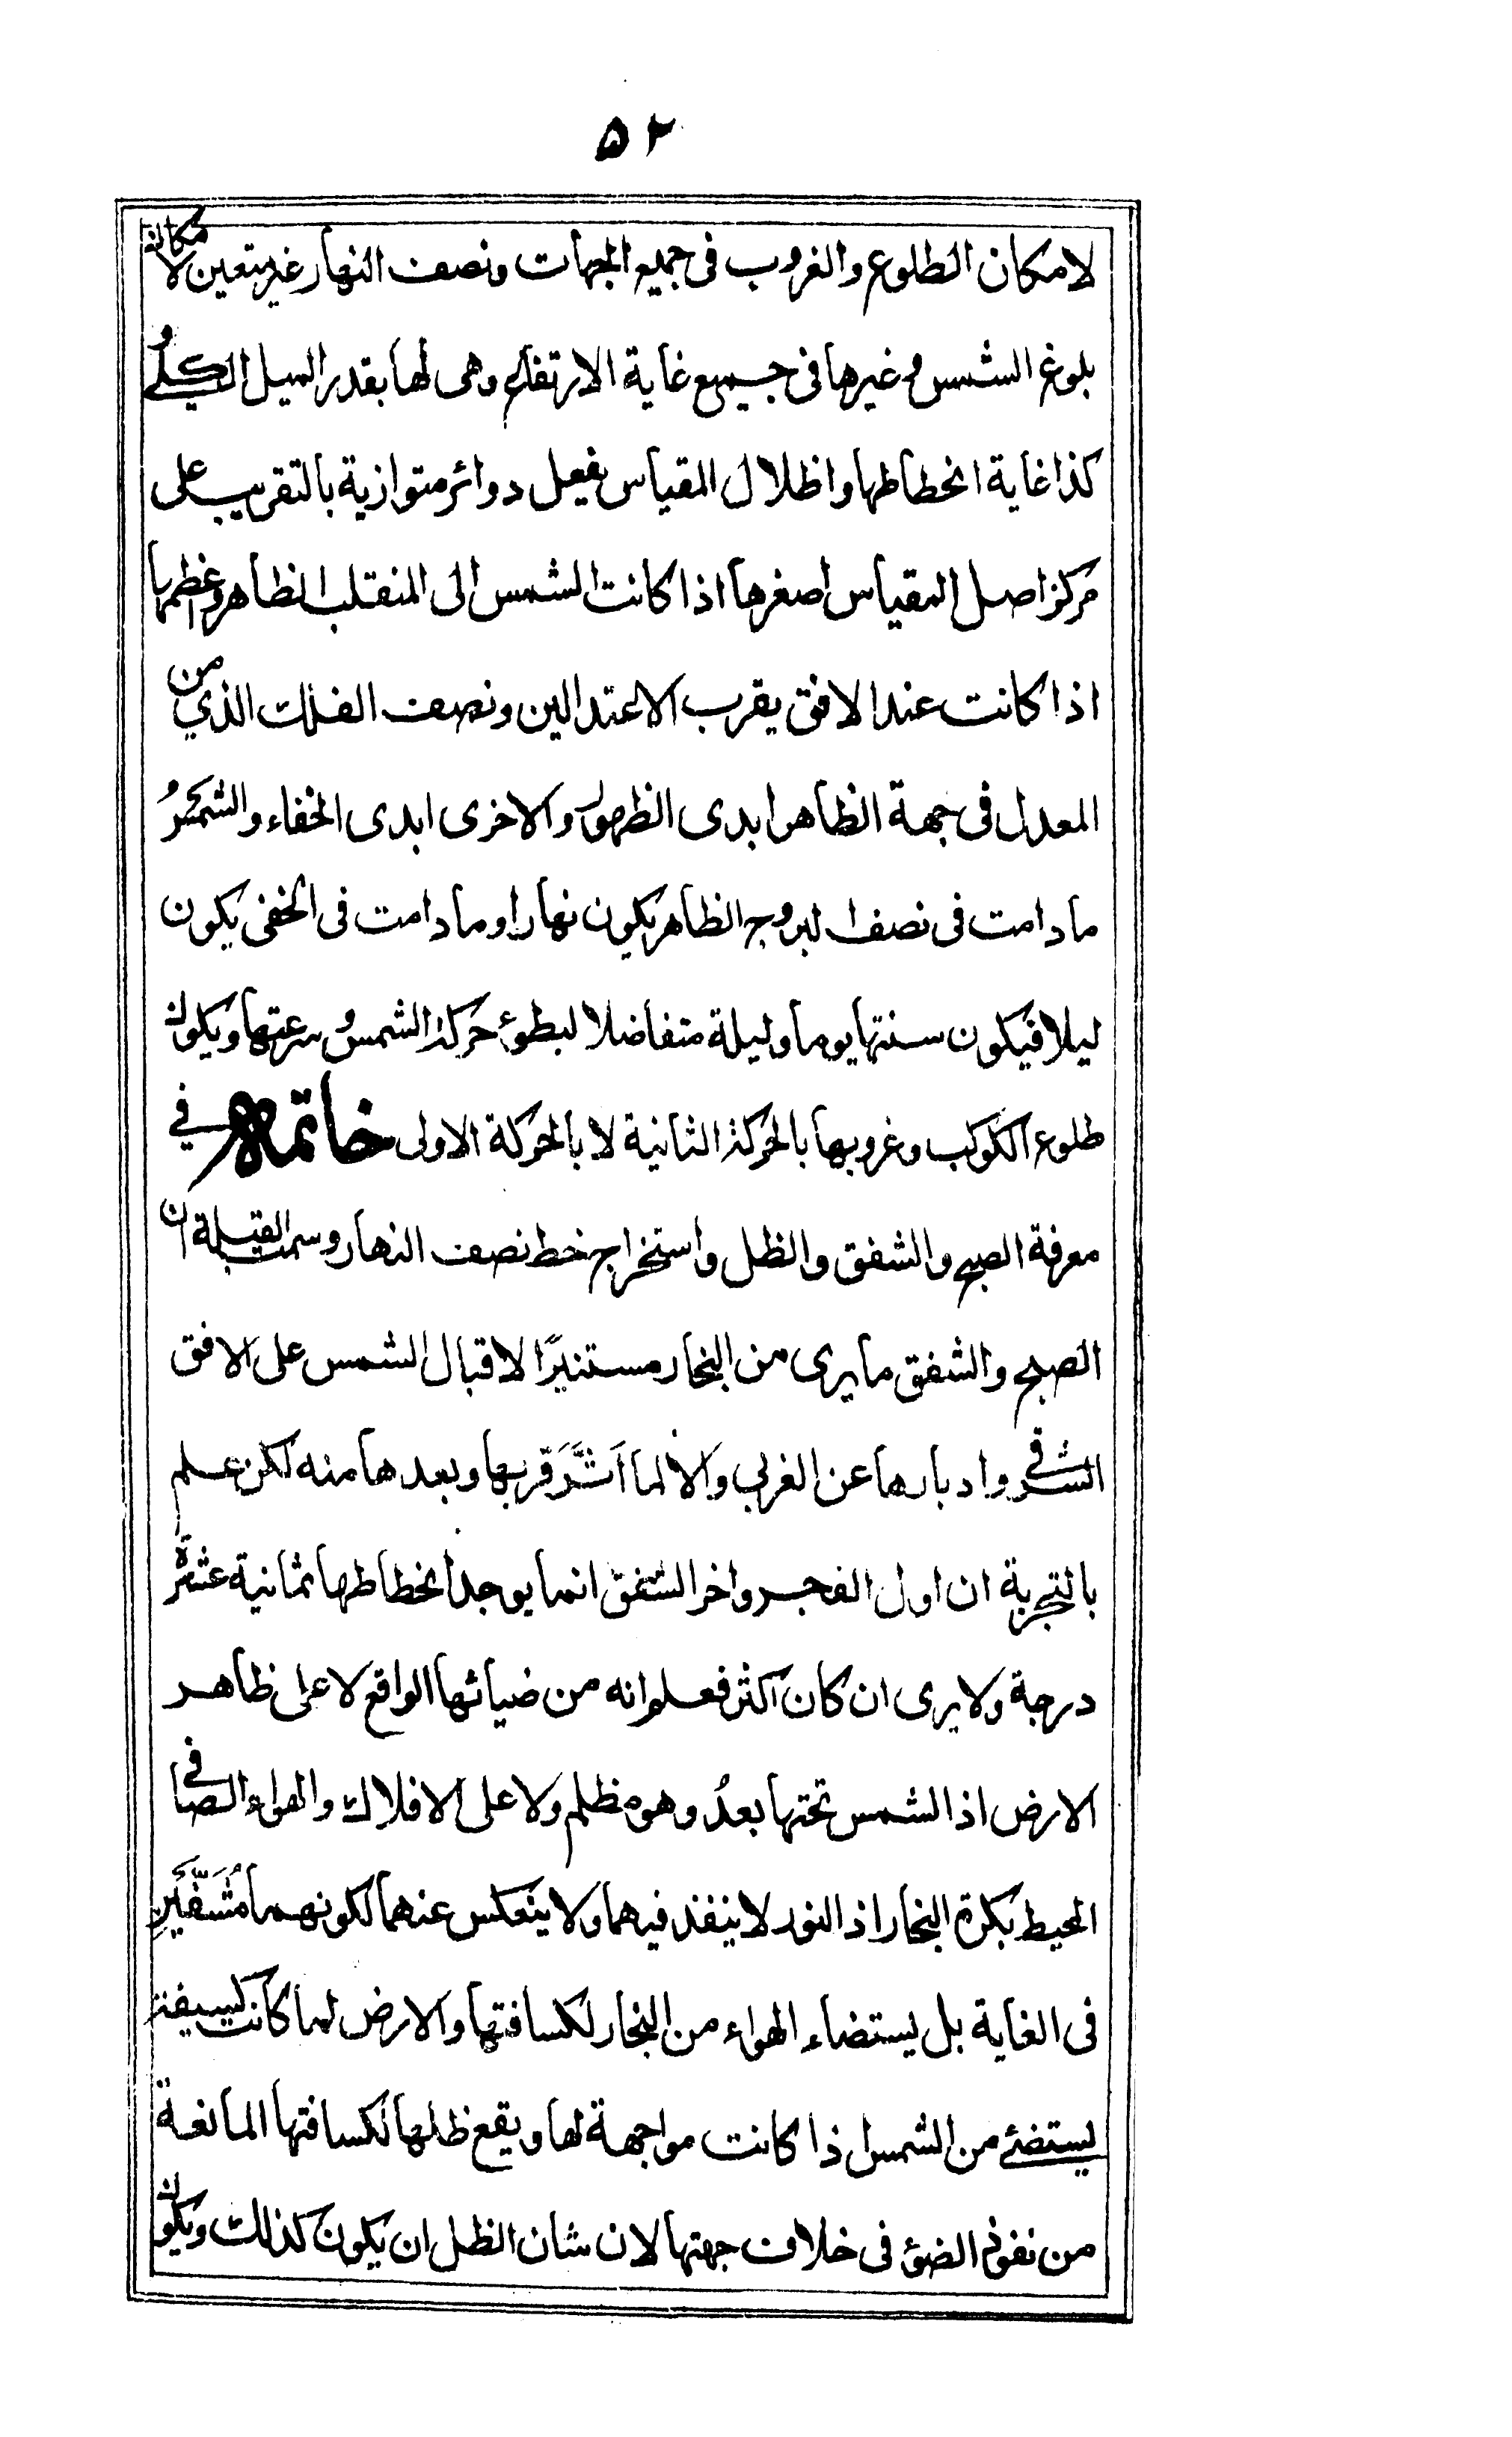 ۵۲
لامكان الطلوع والغروب فى جميع الجهات ونصف النهار غير متعين لا مكان
بلوغ الشمس وغيرها فى جميع غاية الارتفاع وهى لها بقدر الميل الكلي و
كذا غاية انحطاطها واظلال المقياس يفعل دوائر متوازية بالتقريب على
مركز اصل المقياس اصغرها اذا كانت الشمس الى المنقلب الظاهر واعظمها
اذا كانت عند الافق يقرب الاعتدالين ونصف الفلك الذي من
المعدل فى جهة الظاهر ابدى الظهور والاخرى ابدى الخفاء والشمس
مادامت فى نصف البروج الظاهر يكون نهارا ومادامت فى الخفى يكون
ليلا فيكون سنتها يوما وليلة متفاضلا لبطوء حركة الشمس و سرعتها ويكون
طلوع الكوكب وغروبها بالحركة الثانية لا بالحركة الاولى خاتمه في
معرفة الصبح والشفق والظل واستخراج خط نصف النهار وسمت القبلة ان
الصبح والشفق ما يرى من البخار مستنيرًا لاقبال الشمس على الافق
الشرقي وادبارها عن الغربي والا لما اَثَّرَ قربها وبعدها منه لكن علم
بالتجربة ان اول الفجر واخر الشفق انما يوجد انحطاطها ثمانية عشرة
درجة ولا يرى ان كان اكثر فعلم انه من ضيائها الواقع لا على ظاهر
الارض اذ الشمس تحتها بعدُ وهو مظلم ولا على الافلاك والهواء الصافي
المحيط بكرة البخار اذ النور لا ينفذ فيهما ولا ينعكس عنهما لكونهما مُشَفَّيَنِ
فى الغاية بل يستضاء الهواء من البخار لكسافتها والارض لما كانت كسيفة
يستضئ من الشمس اذا كانت مواجهة لها ويقع ظلها لكسافتها المانعة
من نفوذ الضوء فى خلاف جهتها لان شان الظل ان يكون كذلك ويكون